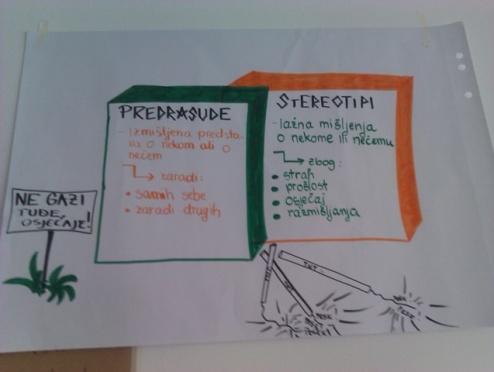 PREDRASUDE
- Izmišljena predsta-
va o nekom ali o
nečem
zaradi:
• samih sebe
• zaradi drugih
STEREOTIPI
- lažna mišljenja
o nekome ili nečemu
zbog:
• strah
• prošlost
• osjećaj
• razmišljanja
NE GAZI
TUĐE
OSJEĆAJE!